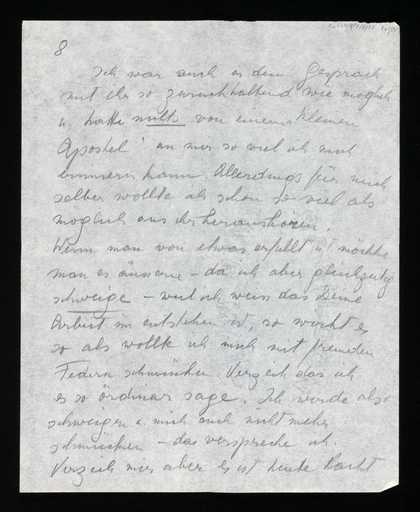 8
Ich war auch in dem Gespräch
mit ihr so zurückhaltend wie möglich
u. hatte nicht von einem kleinen
Apostel an mir so viel ich mich
erinnern kann. Allerdings für mich
selber wollte ich schon so viel als
möglich aus ihr heraushören.
Wenn man von etwas erfüllt ist möchte
man es äussern – da ich aber gleichzeitig
schweige – weil ich weiss das Deine
Arbeit im entstehen ist, so wirkt es
so als wollte ich mich mit fremden
Federn schmücken. Verzeih das ich
es so ördinär sage. Ich werde also
schweigen u. mich auch nicht mehr
schmücken – das verspreche ich.
Verzeih mir aber es ist heute Nacht